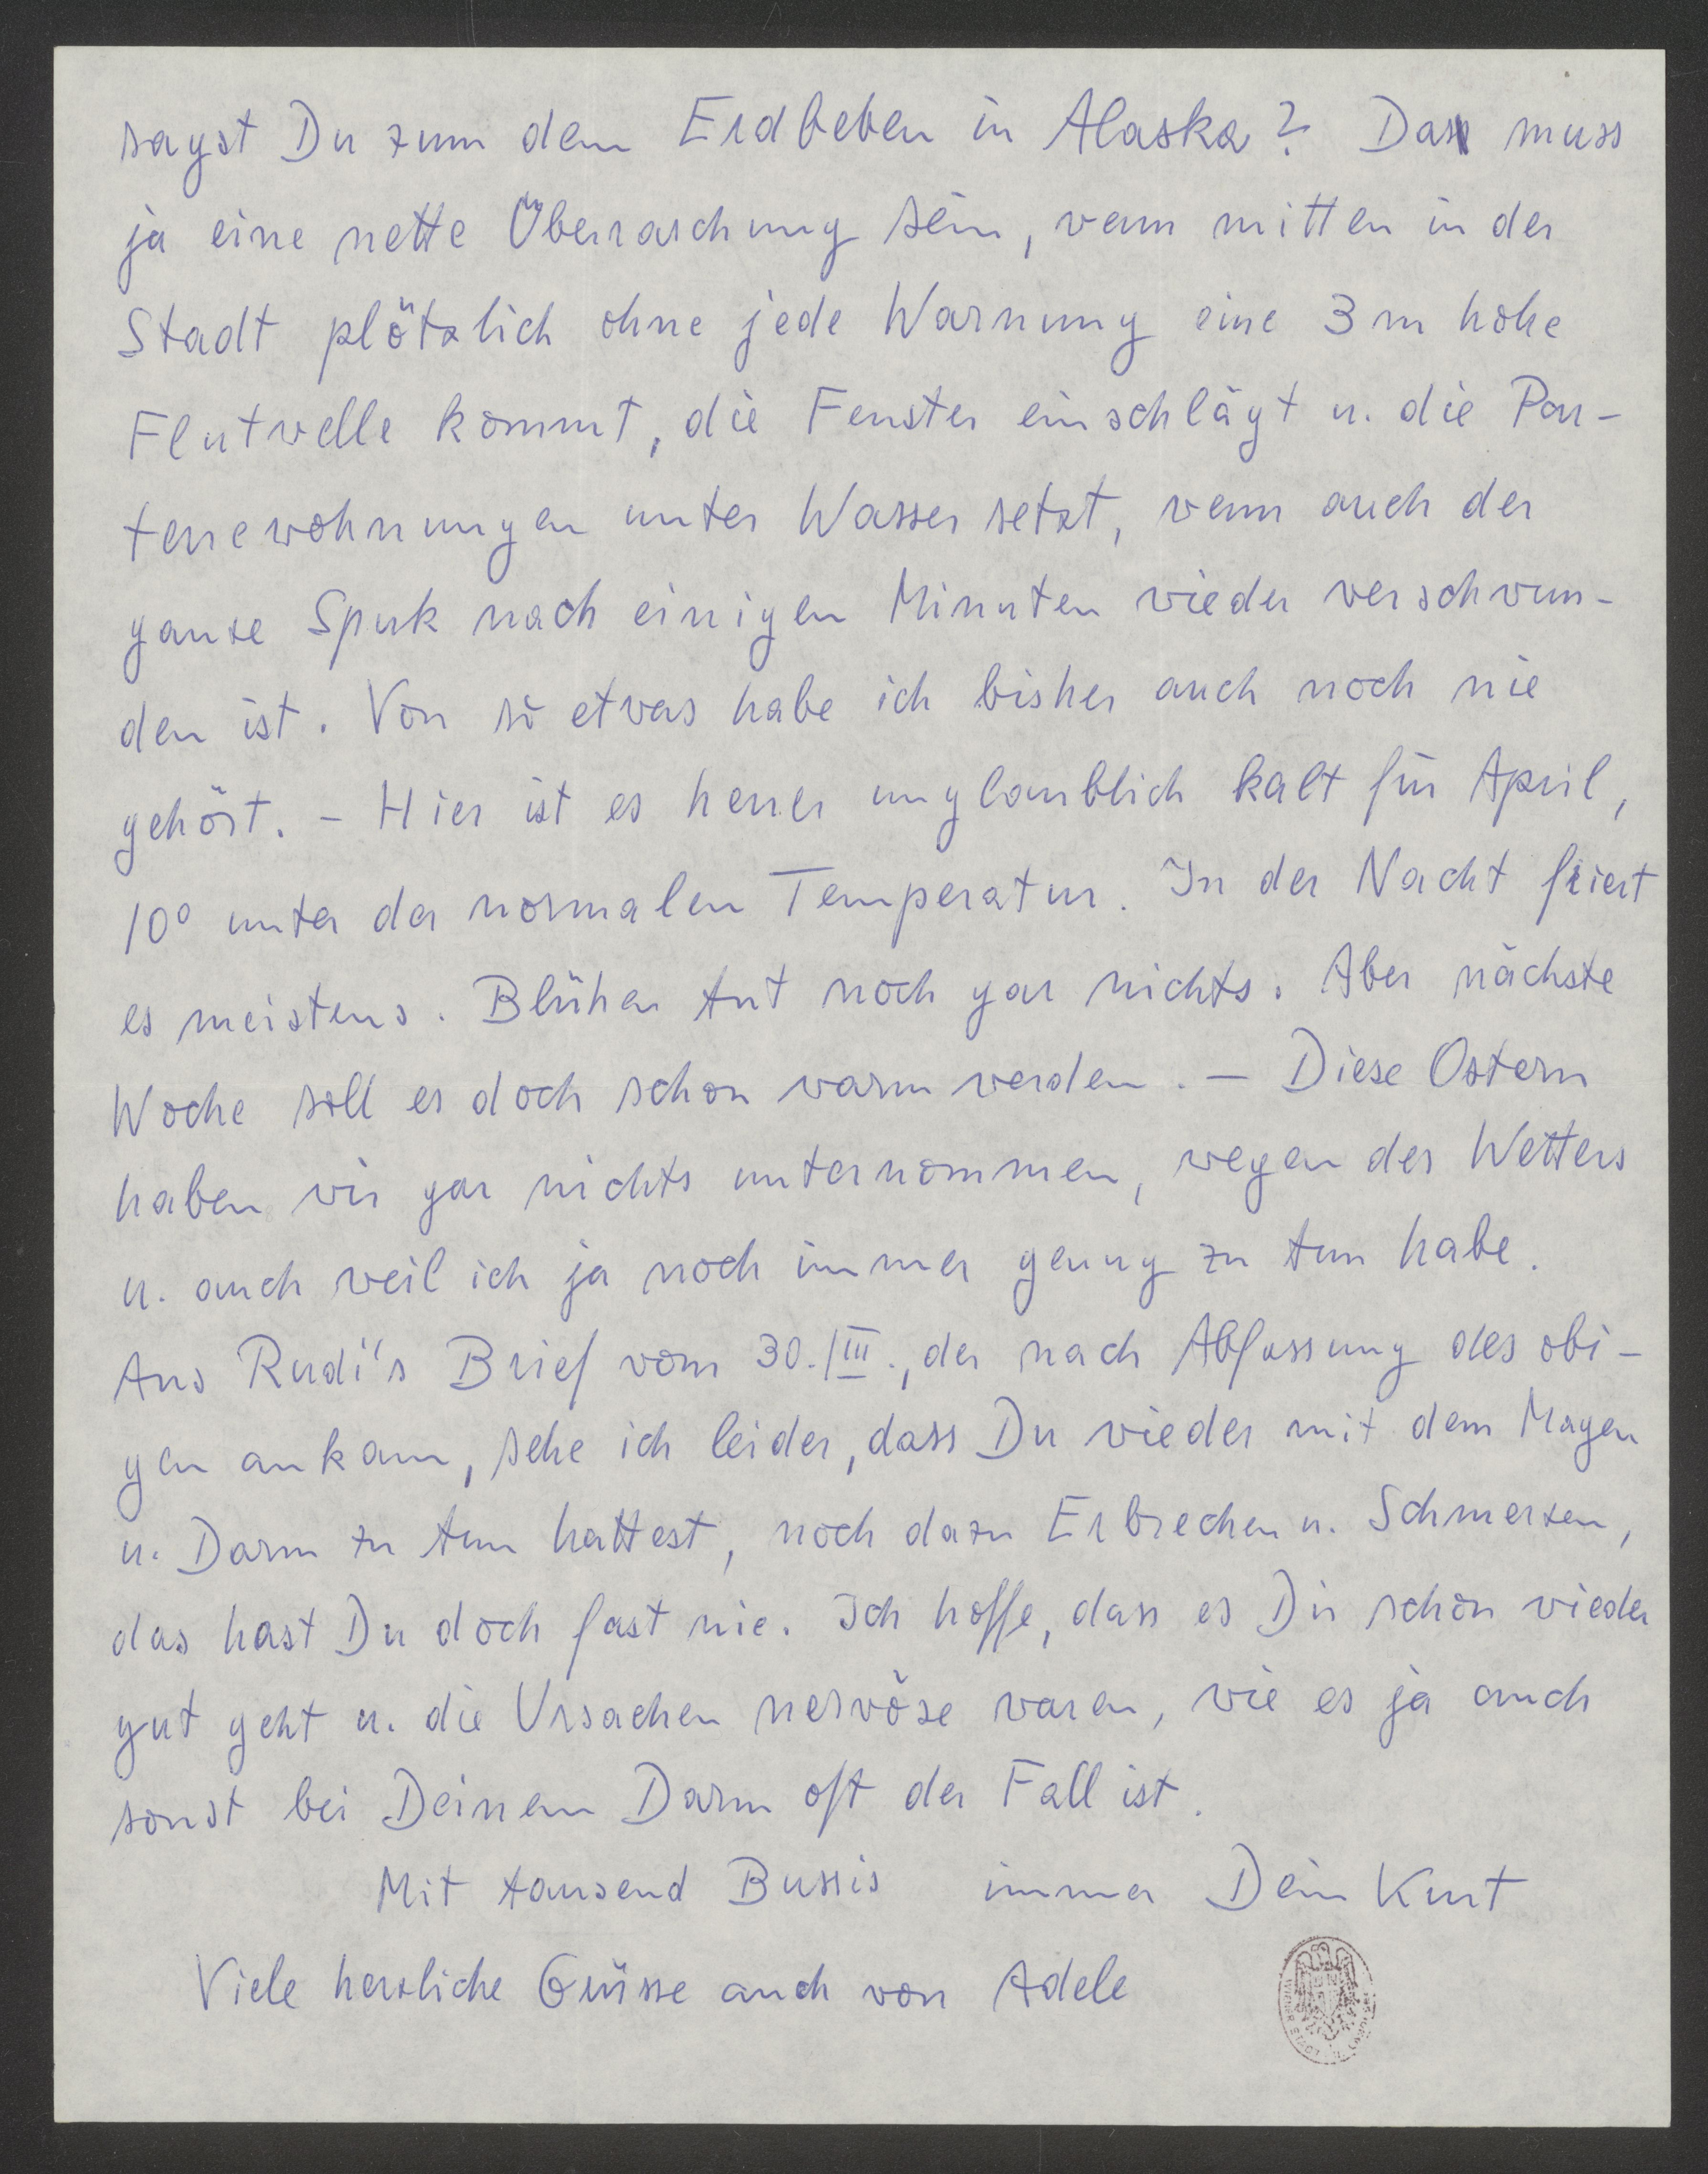 sagst Du zum dem Erdbeben in Alaska? Das muss
ja eine nette Überraschung sein, wenn mitten in der
Stadt plötzlich ohne jede Warnung eine 3 m hohe
Flutwelle kommt, die Fenster einschlägt u. die Par-
terrewohnungen unter Wasser setzt, wenn auch der
ganze Spuk nach einigen Minuten wieder verschwun-
den ist. Von so etwas habe ich bisher auch noch nie
gehört. – Hier ist es heuer unglaublich kalt für April,
10° unter der normalen Temperatur. In der Nacht friert
es meistens. Blühen tut noch gar nichts. Aber nächste
Woche soll es doch schon warm werden. – Diese Ostern
haben wir gar nichts unternommen, wegen des Wetters
u. auch weil ich ja noch immer genug zu tun habe.
Aus Rudi's Brief vom 30./III., der nach Abfassung des obi-
gen ankam, sehe ich leider, dass Du wieder mit dem Magen
u. Darm zu tun hattest, noch dazu Erbrechen u. Schmerzen,
das hast Du doch fast nie. Ich hoffe, dass es Dir schon wieder
gut geht u. die Ursachen nervöse waren, wie es ja auch
sonst bei Deinem Darm oft der Fall ist.
Mit tausend Bussis immer Dein Kurt
Viele herzliche Grüsse auch von Adele